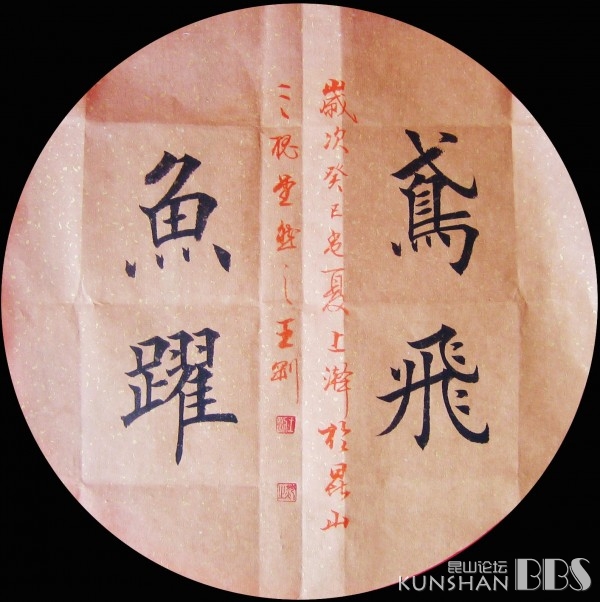 鳶飛
歲次癸巳夏上澣於昆山
三槐堂之王剛
魚躍
昆山论坛
KUNSHAN BBS